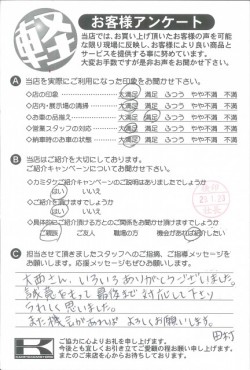 軽
お客様アンケート
当店では、お買い上げ頂いたお客様の声を可能
な限り現場に反映し、お客様により良い商品と
サービスを提供する事に努めています。
大変お手数ですが是非お声をお聞かせ下さい。
A 当店を実際にご利用になった印象をお聞かせ下さい。
◇店の印象 大満足 満足 ふつう やや不満 不満
◇店内・展示場の清掃 大満足 満足 ふつう やや不満 不満
◇お車の品揃え 大満足 満足 ふつう やや不満 不満
◇営業スタッフの対応 大満足 満足 ふつう やや不満 不満
◇納車時のお車の状態 大満足 満足 ふつう やや不満 不満
B 当店はご紹介を大切にしております。
ご紹介キャンペーンについてお聞かせ下さい。
◇カミタケご紹介キャンペーンのご説明はありましたでしょうか
はい いいえ
はい いいえ
ご親族 ご友人 職場の方 機会があれば紹介したい
C 担当させて頂きましたスタッフへのご指摘、ご指導メッセージを
お願いします。応援メッセージもぜひお願いします。
大西さん、いろいろありがとうございました。
誠意をもって最後まで対応して下さり
うれしく思いました。
また機会があれば よろしくお願いします。
田村
K
ご協力に心よりお礼を申し上げます。
今後とも宜しくお引き立ての程お願い申し上げます。
またのご来店を心からお待ちしております。